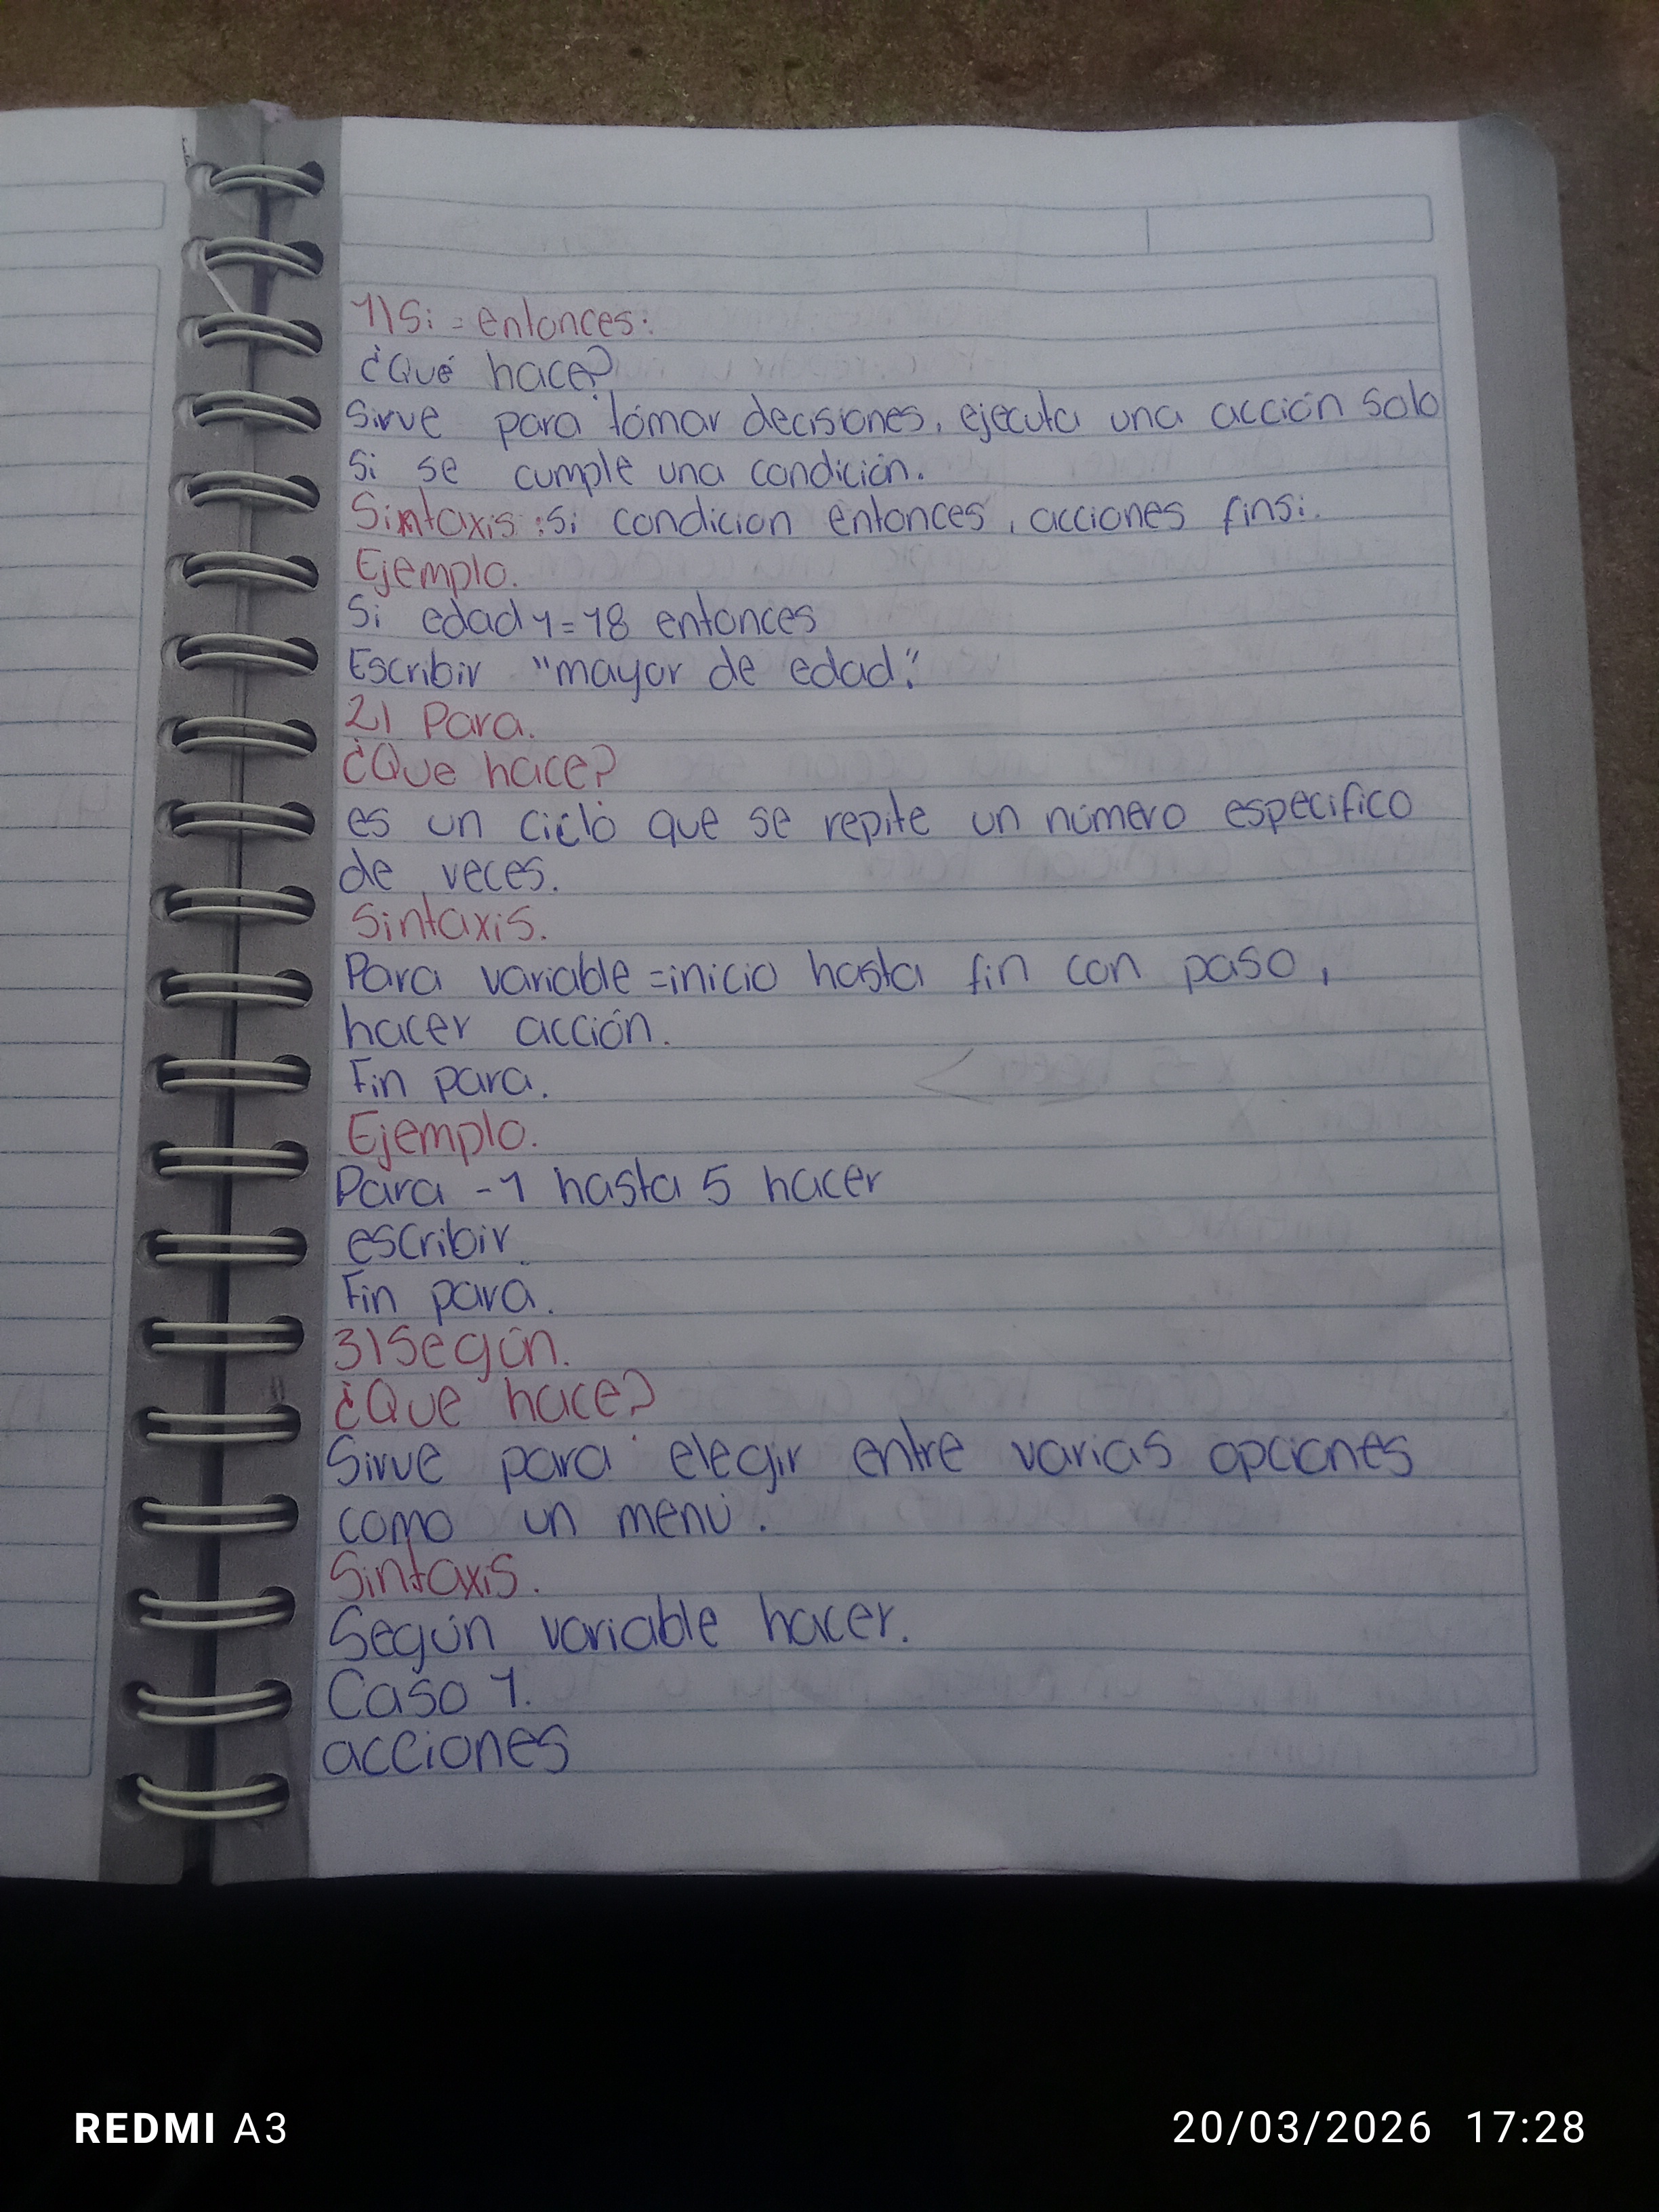 1) Si = entonces:
¿Qué hace?
Sirve para tomar decisiones, ejecuta una acción solo
Si se cumple una condición.
Sintaxis : Si condicion entonces, acciones finsi.
Ejemplo.
Si edad 1 = 18 entonces
Escribir "mayor de edad."
2) Para.
¿Que hace?
es un ciclo que se repite un número especifico
de veces.
Sintaxis.
Para variable = inicio hasta fin con paso,
hacer acción.
Fin para.
Ejemplo.
Para - 1 hasta 5 hacer
escribir.
Fin para.
3) Según.
¿Que hace?
Sirve para elegir entre varias opciones
como un menú.
Sintaxis.
Según variable hacer.
Caso 1.
acciones
REDMI A3
20/03/2026 17:28